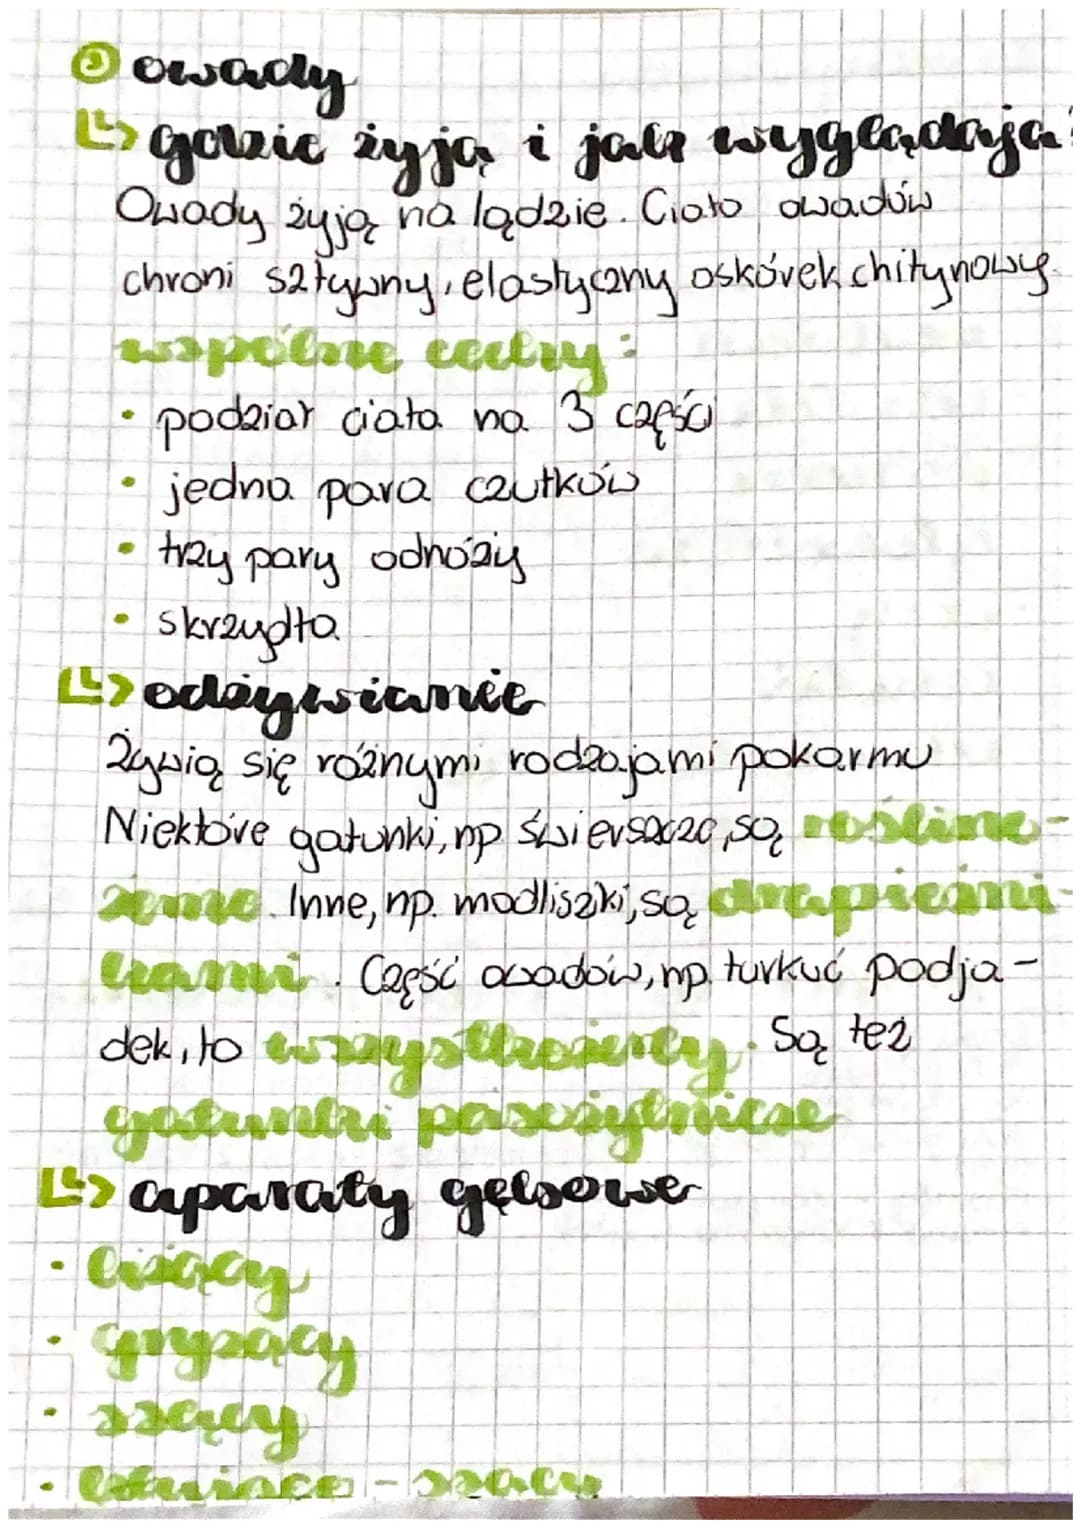 ② owady
↳ gdzie żyją i jak wyglądają?
Owady żyją na lądzie. Ciało owadów
chroni sztywny, elastyczny oskórek chitynowy.
wspólne cechy:
• podział ciała na 3 części
• jedna para czułków
• trzy pary odnóży
• skrzydła
↳ odżywianie
Żywią się różnymi rodzajami pokarmu
Niektóre gatunki, np świerszcze, są roślino-
żerne. Inne, np. modliszki, są drapieżni-
kami. Część owadów, np. turkuć podja-
dek, to wszystkożercy. Są też
gatunki pasożytnicze
↳ aparaty gębowe
• liżący
• gryzący
• ssący
• kłująco - ssący